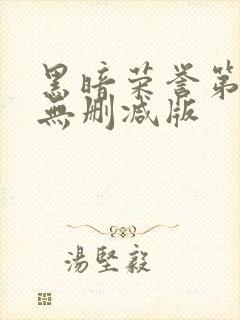 黑暗荣誉第
無删减版
湯堅毅